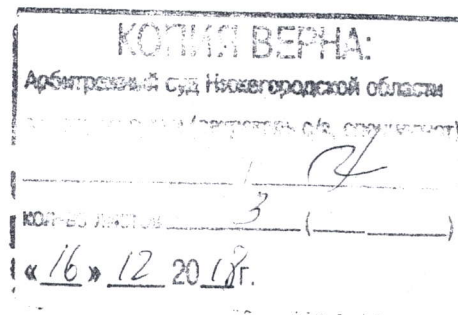 КОПИЯ ВЕРНА:
Арбитражный суд Нижегородской области
(секретарь с/з, специалист)
кол-во листов 3 ( )
« 16 » 12 20 18г.